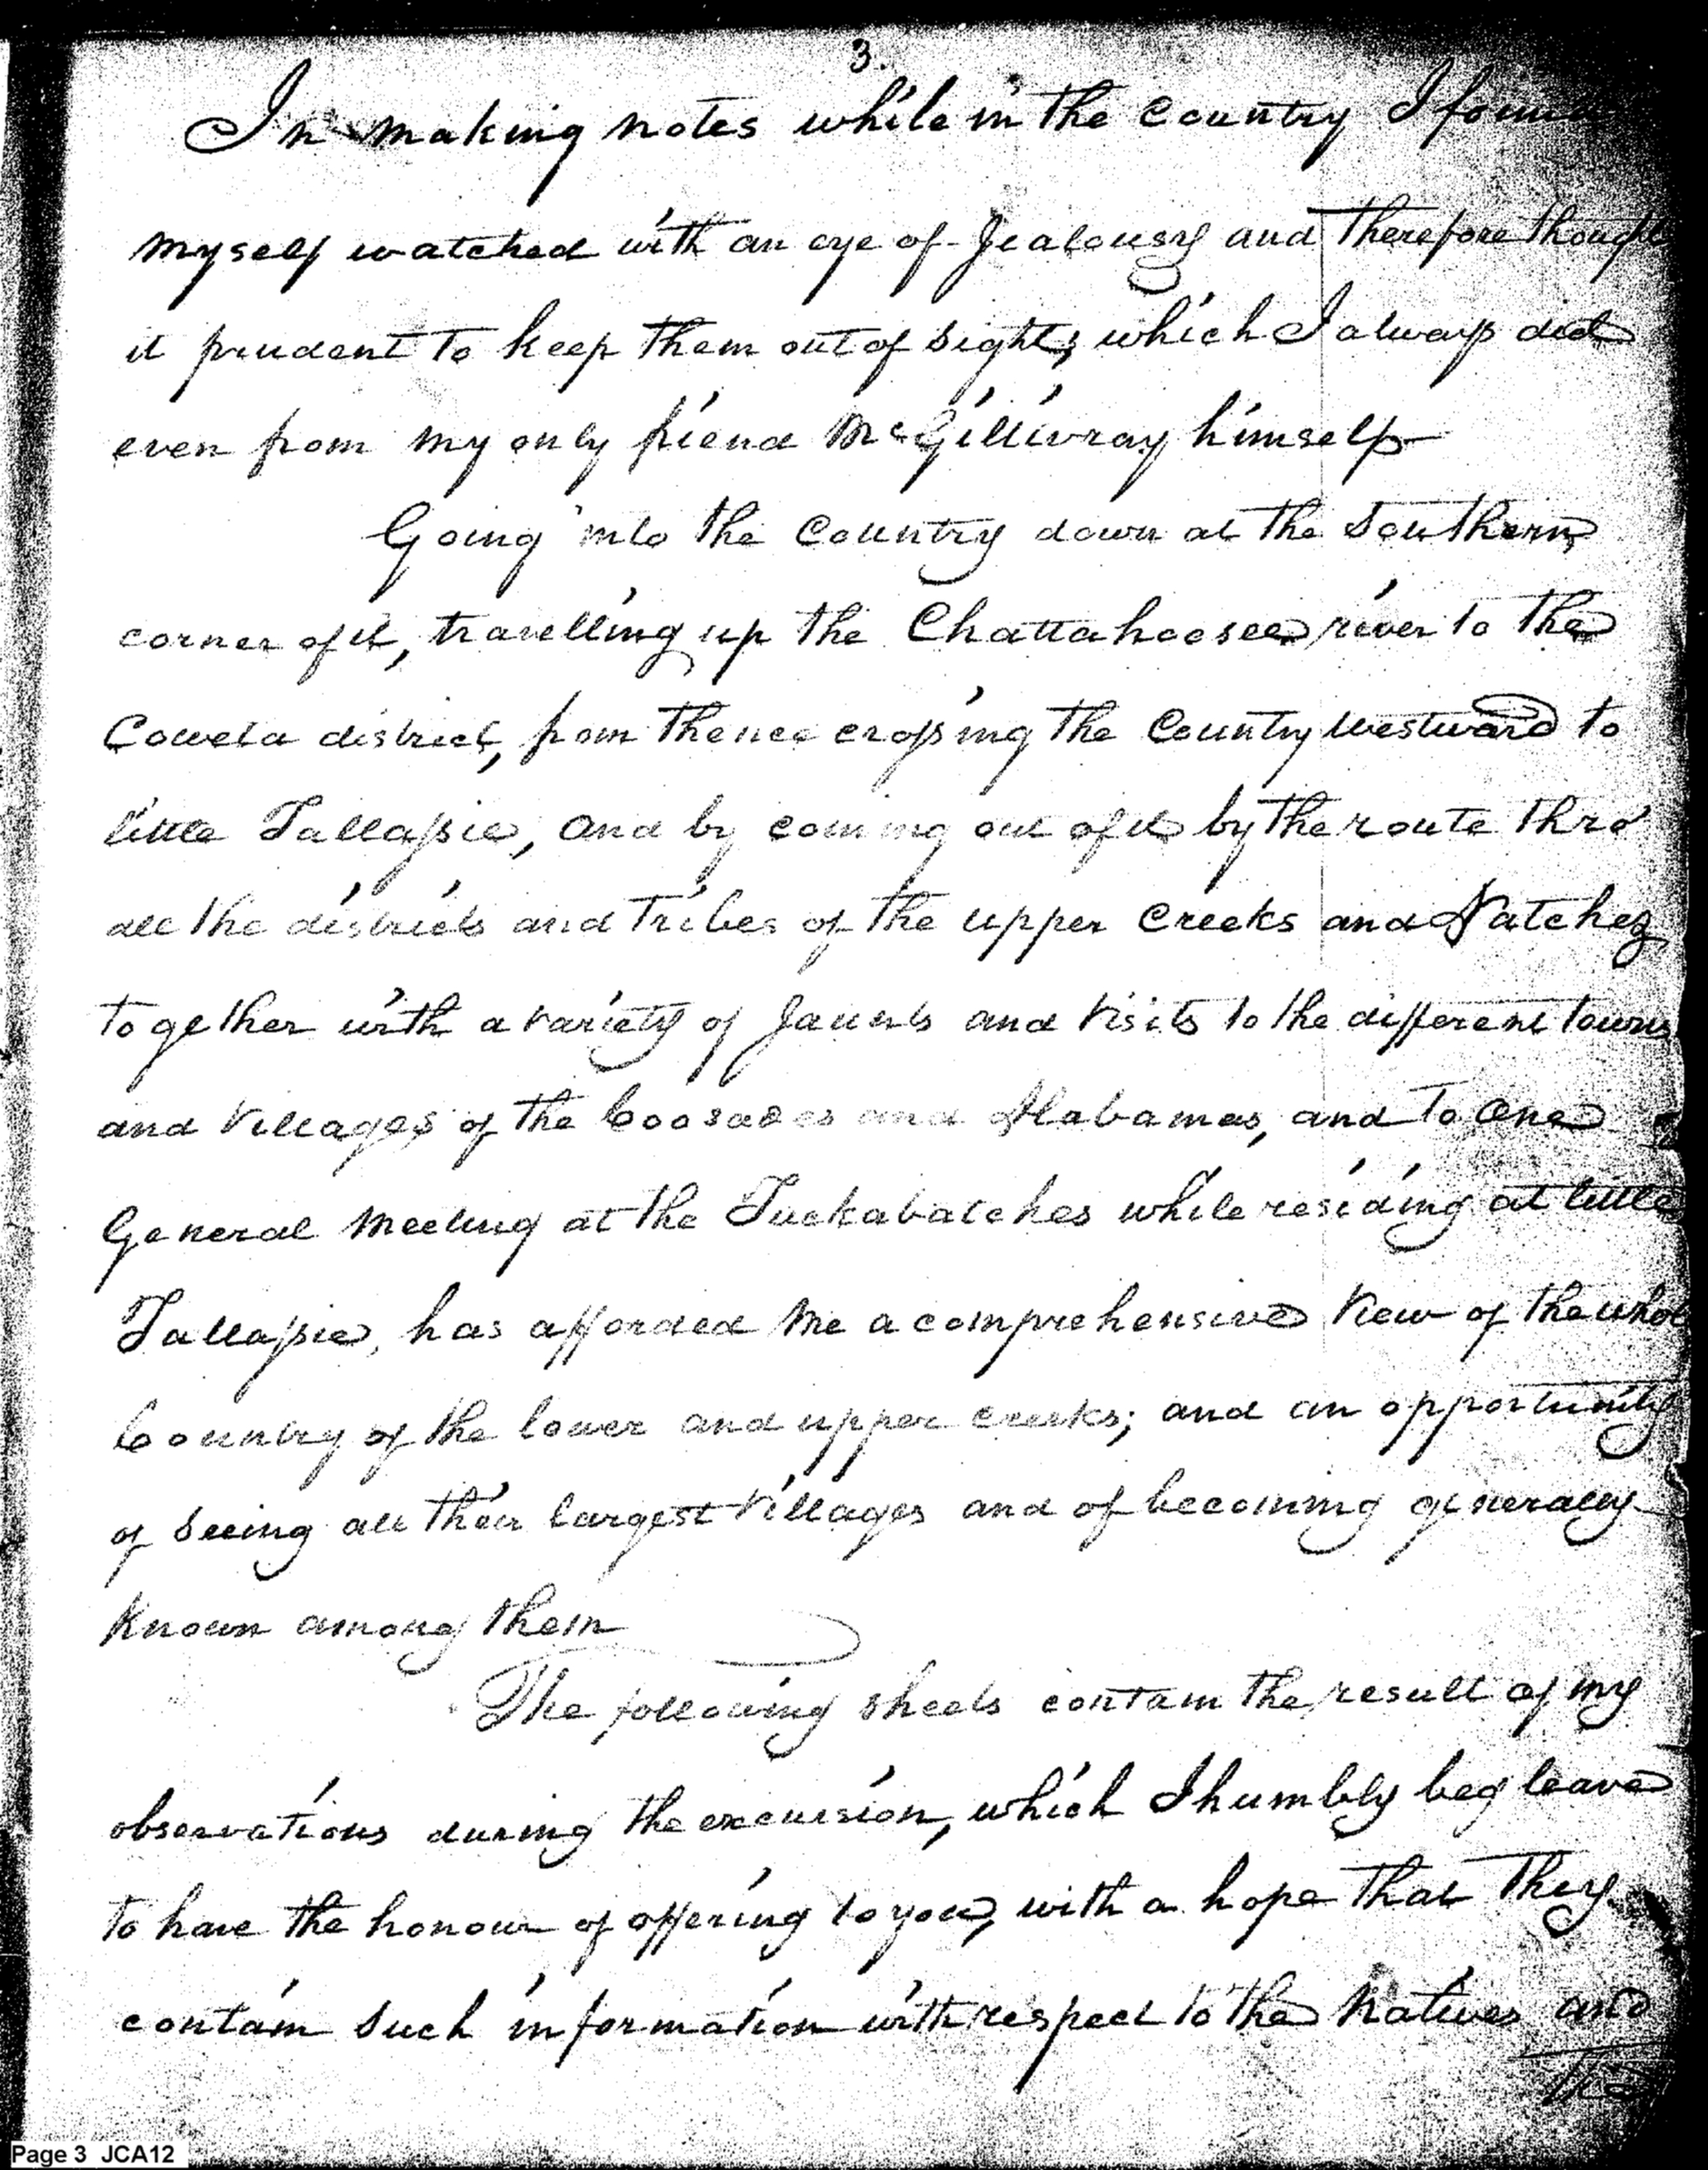 3.
In making notes while in the Country I found
myself watched with an eye of Jealousy and therefore thought
it prudent to keep them out of sight; which I always did
even from my only friend McGillivray himself
Going into the Country down at the Southern
corner of it, travelling up the Chattahoosee river to the
Coweta district, from thence crossing the Country Westward to
little Tallassie, and by coming out of it by the route thro'
all the districts and Tribes of the upper Creeks and Natchez
together with a variety of Jaunts and Visits to the different towns
and Villages of the Coosades and Alabamas, and to one
General Meeting at the Tuckabatches while residing at little
Tallassie, has afforded Me a comprehensive View of the whole
Country of the lower and upper creeks; and an opportunity
of Seeing all their largest Villages and of becoming generally
Known among them
The following sheets contain the result of my
observations during the excursion, which I humbly beg leave
to have the honour of offering to you, with a hope that they
contain Such information with respect to the Natives and
the
Page 3 JCA12